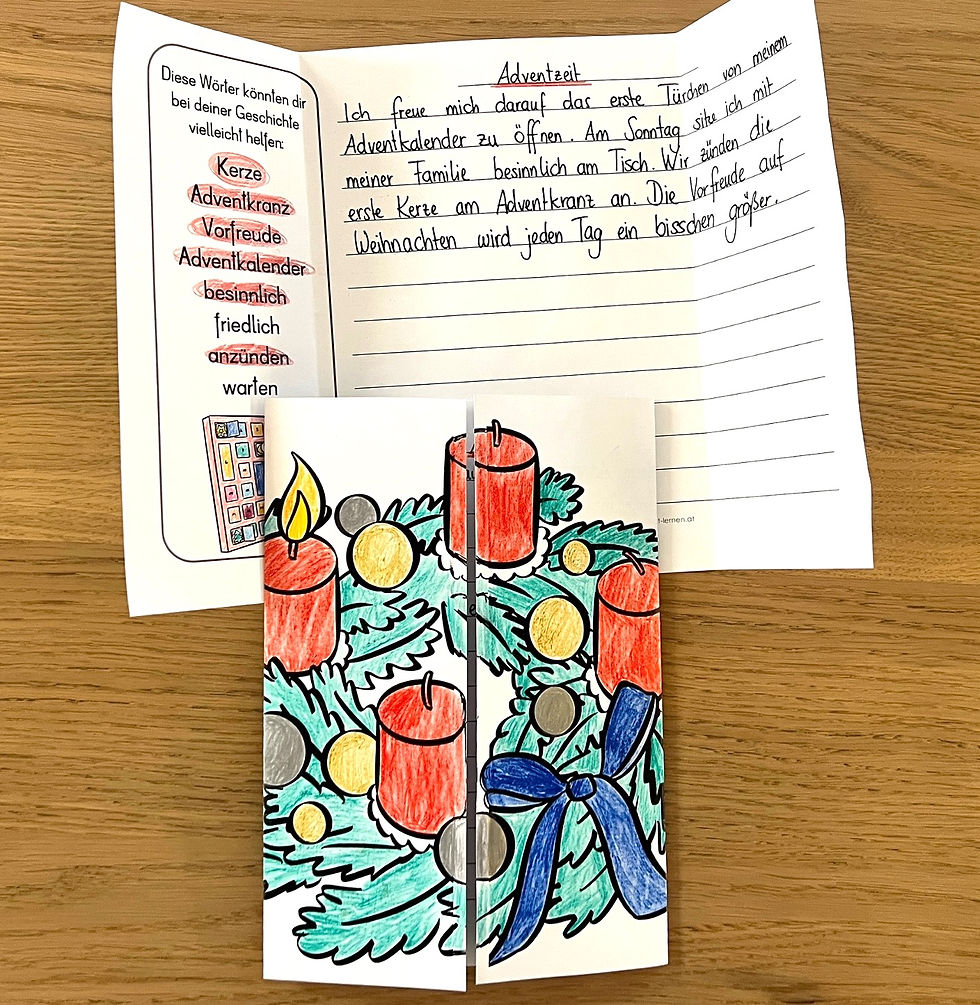 Diese Wörter könnten dir
bei deiner Geschichte
vielleicht helfen:
Kerze
Adventkranz
Vorfreude
Adventkalender
besinnlich
friedlich
anzünden
warten
Adventzeit
Ich freue mich darauf das erste Türchen von meinem
Adventkalender zu öffnen. Am Sonntag sitze ich mit
meiner Familie besinnlich am Tisch. Wir zünden die
erste Kerze am Adventkranz an. Die Vorfreude auf
Weihnachten wird jeden Tag ein bisschen größer.
t-lernen.at